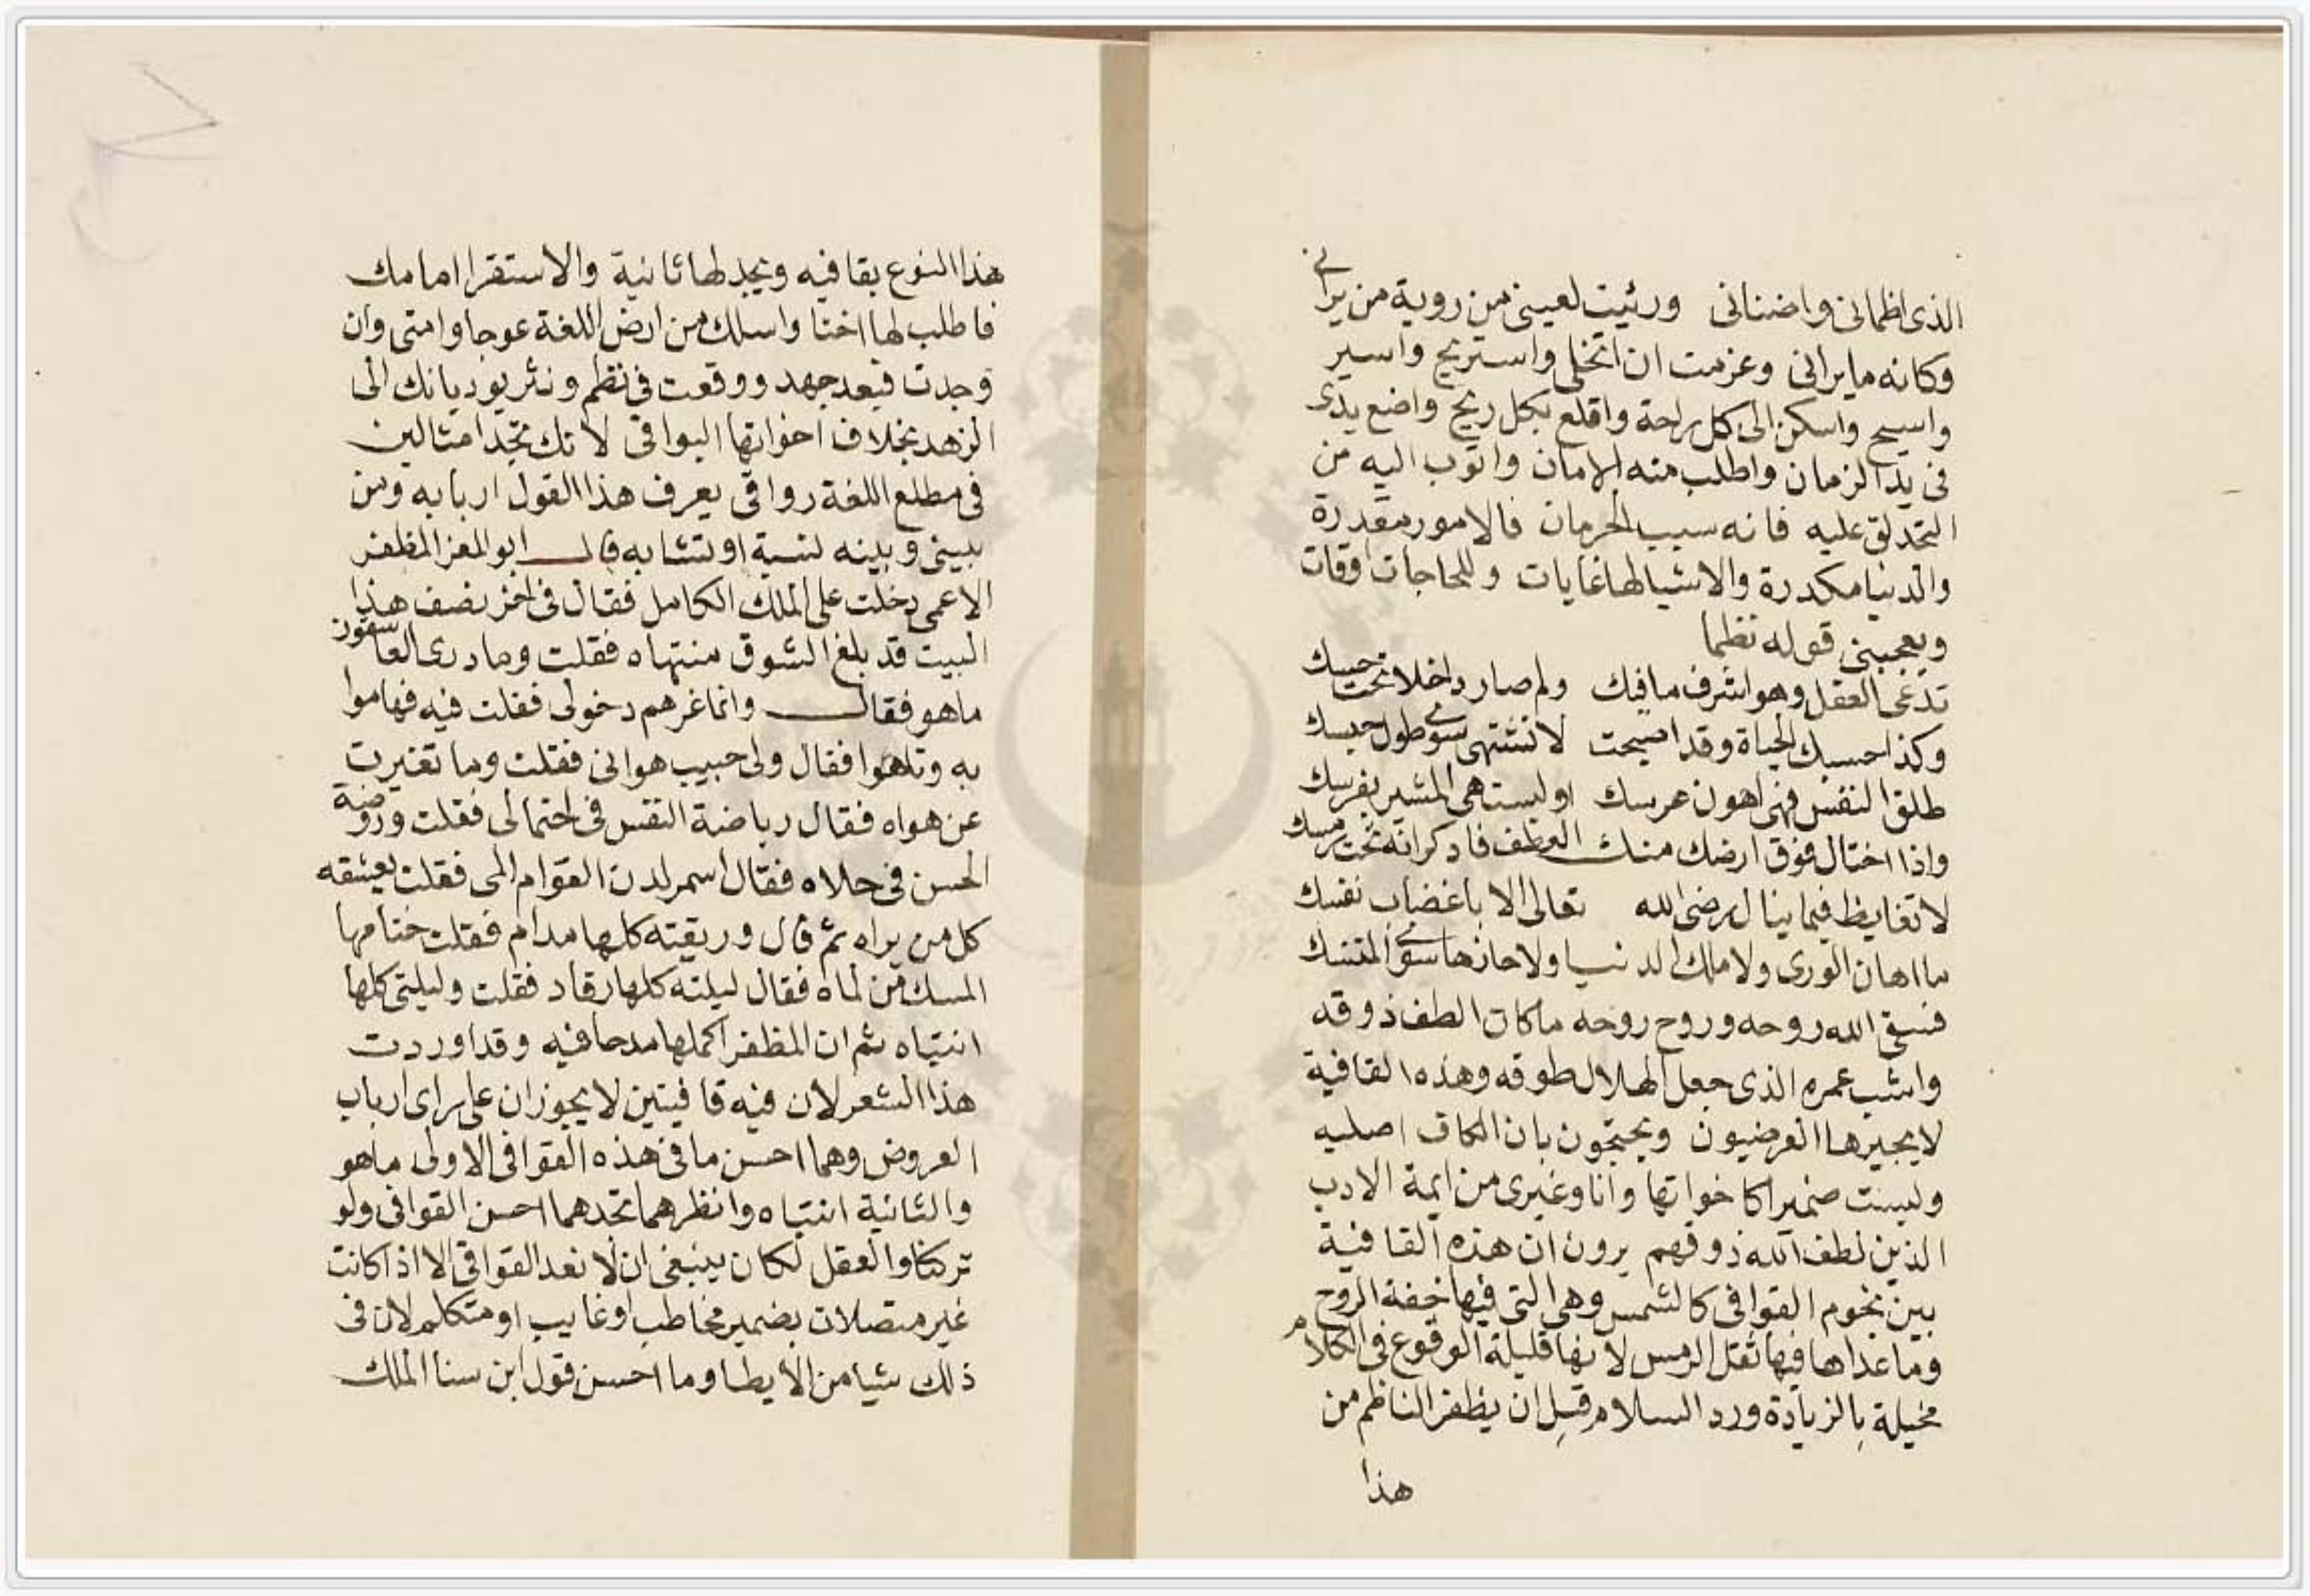 الذى اظمانى واضنانى ورثيت لعينى من روية من يرانى
وكانه ما يرانى وعزمت ان اتخلى واستريح واسير
واسيح واسكن الى كل راحة واقلع بكل ريح واضع يدى
فى يد الزمان واطلب منه الامان واتوب اليه من
التحذلق عليه فانه سبب الحرمان فالامور مقدرة
والدنيا مكدرة والاشيا لها غايات وللحاجات اوقات
ويعجبنى قوله نظما
تدعى العقل وهو اشرف ما فيك ولم صار داخلا تحت حسك
وكذا حسبك الحياة وقد اصبحت لا تشتهى سوى طول حبسك
طلق النفس فهى اهون عرسك اوليست هى المشير بفرسك
واذا اختال فوق ارضك منك العطف فادكر انه تحت رمسك
لا تغايظ فيما ينال رضى الله تعالى الا باغضاب نفسك
ما اهان الورى ولا ملك الدنيا ولا حازها سوى المتنسك
فسقى الله روحه وروح روحه ما كان الطف ذوقه
واشب عمره الذى جعل الهلال طوقه وهذه القافية
لا يجيزها العرضيون ويحتجون بان الكاف اصليه
وليست ضميرا كاخواتها وانا وغيرى من ايمة الادب
الذين لطف الله ذوقهم يرون ان هذه القافية
بين نجوم القوافى كالشمس وهى التى فيها خفة الروح
وما عداها فيها ثقل الرمس لانها قليلة الوقوع فى الكلام
مخيلة بالزيادة ورد السلام قبل ان يظفر الناظم من
هذا
هذا النوع بقافيه ويجد لها ثانية والاستقرا امامك
فاطلب لها اختا واسلك من ارض اللغة عوجا وامتى وان
وجدت فبعد جهد ووقعت فى نظم ونثر يوديانك الى
الزهد بخلاف اخواتها البواقى لانك تجد امثالين
فى مطلع اللغة رواقى يعرف هذا القول اربابه ومن
بينى وبينه نسبة او تشابه قال ابو العز المظفر
الاعمى دخلت على الملك الكامل فقال فى اخر نصف هذا
البيت قد بلغ الشوق منتهاه فقلت وما درى العاشقون
ما هو فقال وانما غرهم دخولى فقلت فيه فهاموا
به وتاهوا فقال ولى حبيب هوانى فقلت وما تغيرت
عن هواه فقال رياضة النفس فى احتمالى فقلت وروضة
الحسن فى حلاه فقال اسمر لدن القوام المى فقلت يعشقه
كل من يراه ثم قال وريقته كلها مدام فقلت ختامها
المسك من لماه فقال ليلته كلها رقاد فقلت وليلتى كلها
انتباه ثم ان المظفر اكملها مدحا فيه وقد اوردت
هذا الشعر لان فيه قافيتين لا يجوزان على راى ارباب
العروض وهما احسن ما فى هذه القوافى الاولى ما هو
والثانية انتباه وانظرهما تجدهما احسن القوافى ولو
تركنا والعقل لكان ينبغى ان لا نعد القوافى الا اذا كانت
غير متصلات بضمير مخاطب او غايب او متكلم لان فى
ذلك شيا من الايطا وما احسن قول ابن سنا الملك